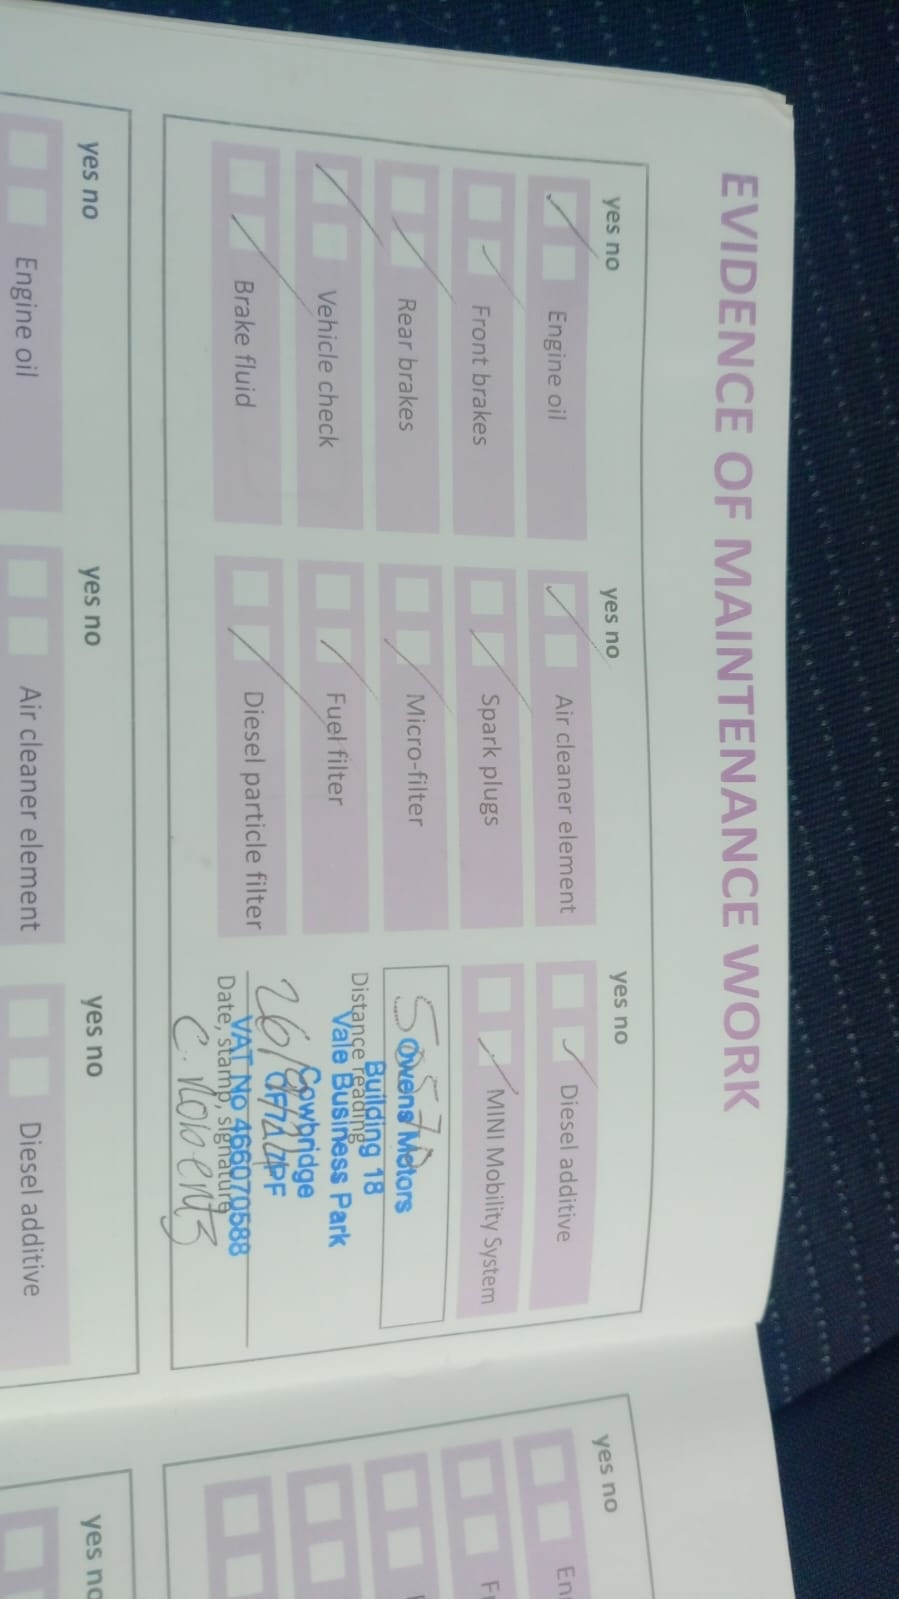 EVIDENCE OF MAINTENANCE WORK
yes no
Engine oil
Front brakes
Rear brakes
Vehicle check
Brake fluid
yes no
Air cleaner element
Spark plugs
Micro-filter
Fuel filter
Diesel particle filter
yes no
Diesel additive
MINI Mobility System
Owens Motors
Building 18
Distance reading
Vale Business Park
Cowbridge
VAT No 466070588
Date, stamp, signature
yes no
Engine oil
yes no
Air cleaner element
yes no
Diesel additive
yes no
yes no